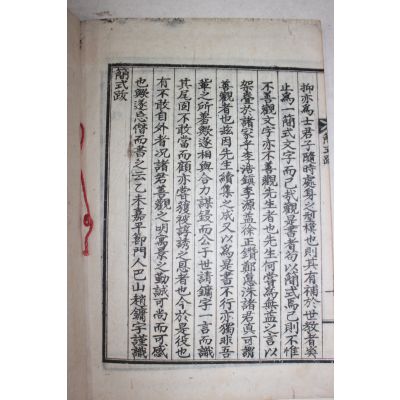 抑亦爲士君子隨時處身之型模也則其有補於世教者奚
止爲一簡式文字而已哉觀是書者苟以簡式焉已則不惟
不善觀文字亦不善觀先生者也先生何嘗爲無益之言以
架疊於諸家乎李浩鎭李源益徐正鑽鄭憲洙諸君眞可謂
善觀者也玆因先生續集之成又以爲是書不行亦獨非吾
輩之所羞歟遂相與合力謀鋟而公子世請鏞字一言而識
其尾固不敢當而顧亦嘗獲被諄誘之恩者也今於是役也
有不敢自外者况諸君善觀之明寓慕之勤誠可尚而可感
也歟遂忘僭而書之云乙未嘉平節門人巴山趙鏞字謹識
簡式跋